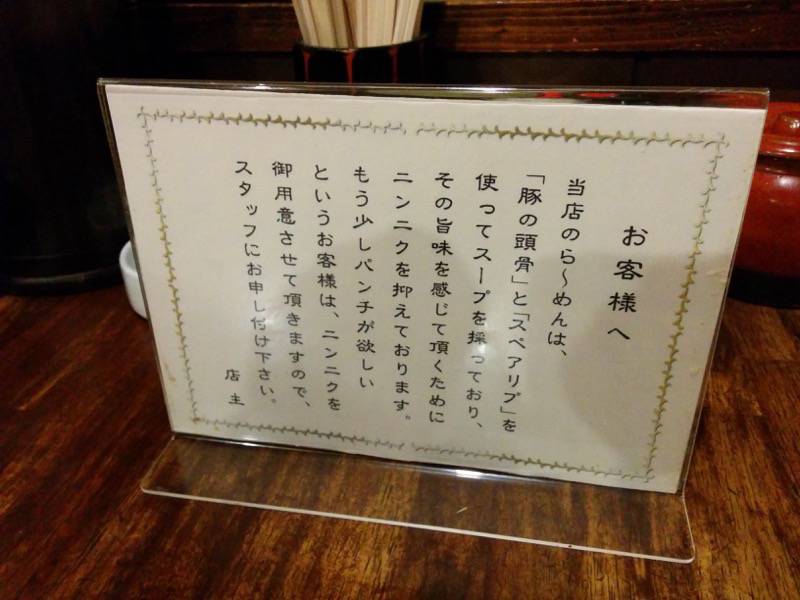 お客様へ
当店のら〜めんは、
「豚の頭骨」と「スペアリブ」を
使ってスープを採っており、
その旨味を感じて頂くために
ニンニクを抑えております。
もう少しパンチが欲しい
というお客様は、ニンニクを
御用意させて頂きますので、
スタッフにお申し付け下さい。
店主